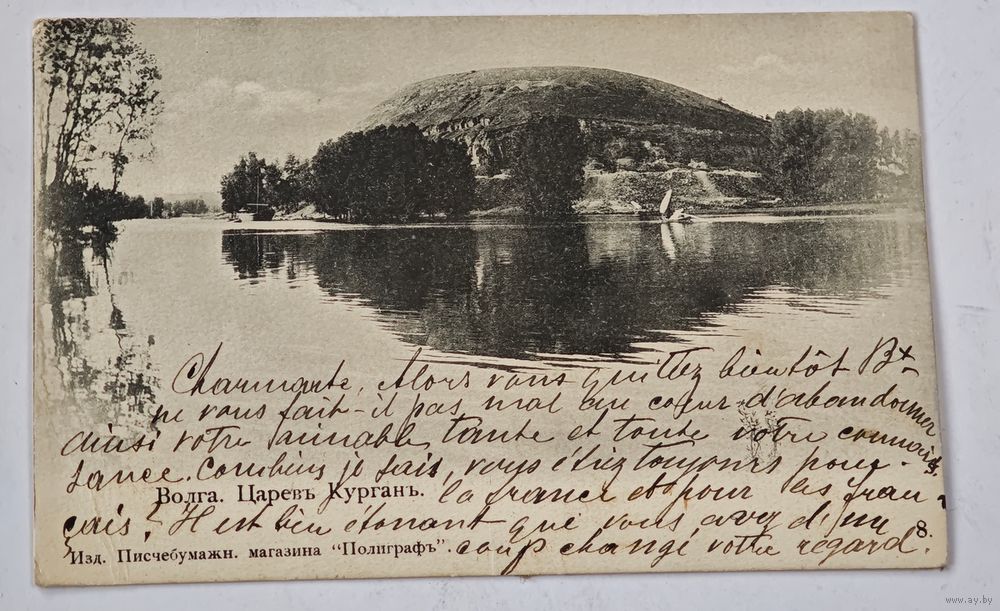 Charmante, Alors vous quittez bientôt B+
ne vous fait-il pas mal au cœur d'abandonner
ainsi votre aimable tante et toute votre connais
sance. Combien je sais, vous étiez toujours pour
Волга. Царевъ Курганъ. la france et pour les fran
çais! Il est bien étonant que vous avez d'un
Изд. Писчебумажн. магазина "Полиграфъ". coup changé votre regard. 8.
www.ay.by